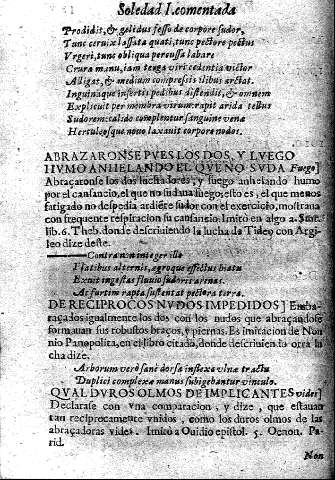 Soledad I. comentada
Prodidit, & gelidus fesso de corpore sudor,
Tunc ceruix lassata quati, tunc pectore pectus
Vrgeri, tunc obliqua percussa labare
Crura manu, iam tenga viri cedentia victor
Adligat, & medium compressis ilibus arctat.
Inguinaque insertis pedibus distendit, & omnem
Explicuit per membra virum: rapit arida tellus
Sudorem: calido complentur sanguine vena
Herculeosque nouo laxauit corpore nodos.
ABRAZARONSE PVES LOS DOS, Y LVEGO
HVMO ANHELANDO EL QVE NO SVDA Fuego]
Abraçaronse los dos luchadores, y fuego anhelando humo
por el cansancio, el que no suda fuego, esto es, el que menos
fatigado no despedia ardiẽte sudor con el exercicio, mostraua
con frequente respiracion su cansancio. Imitò en algo a
lib. 6. Theb. donde descriuiendo la lucha de Tideo con Argi-
leo dize deste.
Contra non integer ille
Flatibus alternis, ægroque effectus hiatu
Exuit ingestas fluuio sudoris arenas.
Ac furtim rapta sustentat pectora terra.
DE RECIPROCOS NVDOS IMPEDIDOS] Emba-
raçados igualmente los dos con los nudos que abraçandose
formauan sus robustos braços, y piernas. Es imitacion de Non
nio Panopolita, en el libro citado, donde descriuiendo otra lu
cha dize.
Arborum verò sanè dorsa inflexa vlnæ tractu
Duplici complexæ manus subigebantur vinculo.
QVAL DVROS OLMOS DE IMPLICANTES vides]
Declarase con vna comparacion, y dize, que estauan
tan reciprocamente vnidos, como los duros olmos de las
abraçadoras vides. Imitò a Ouidio epistol. 5. Oenon. Pa-
rid.
Non